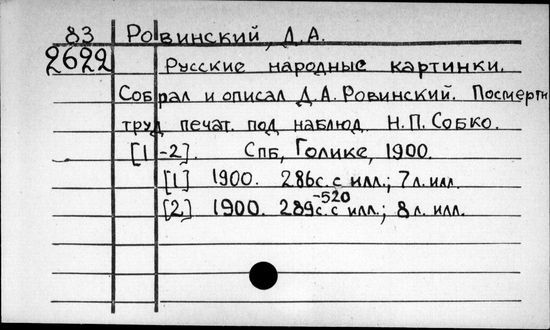 83 Ровинский, Д.А.
2622
Русские народные картинки.
Собрал и описал Д.А. Ровинский. Посмертн
труд печат. под наблюд. Н.П. Собко.
[1-2]. Спб, Голике, 1900.
[1] 1900. 286с. с илл.; 7 л. илл.
[2] 1900. 289-520с. с илл.; 8 л. илл.